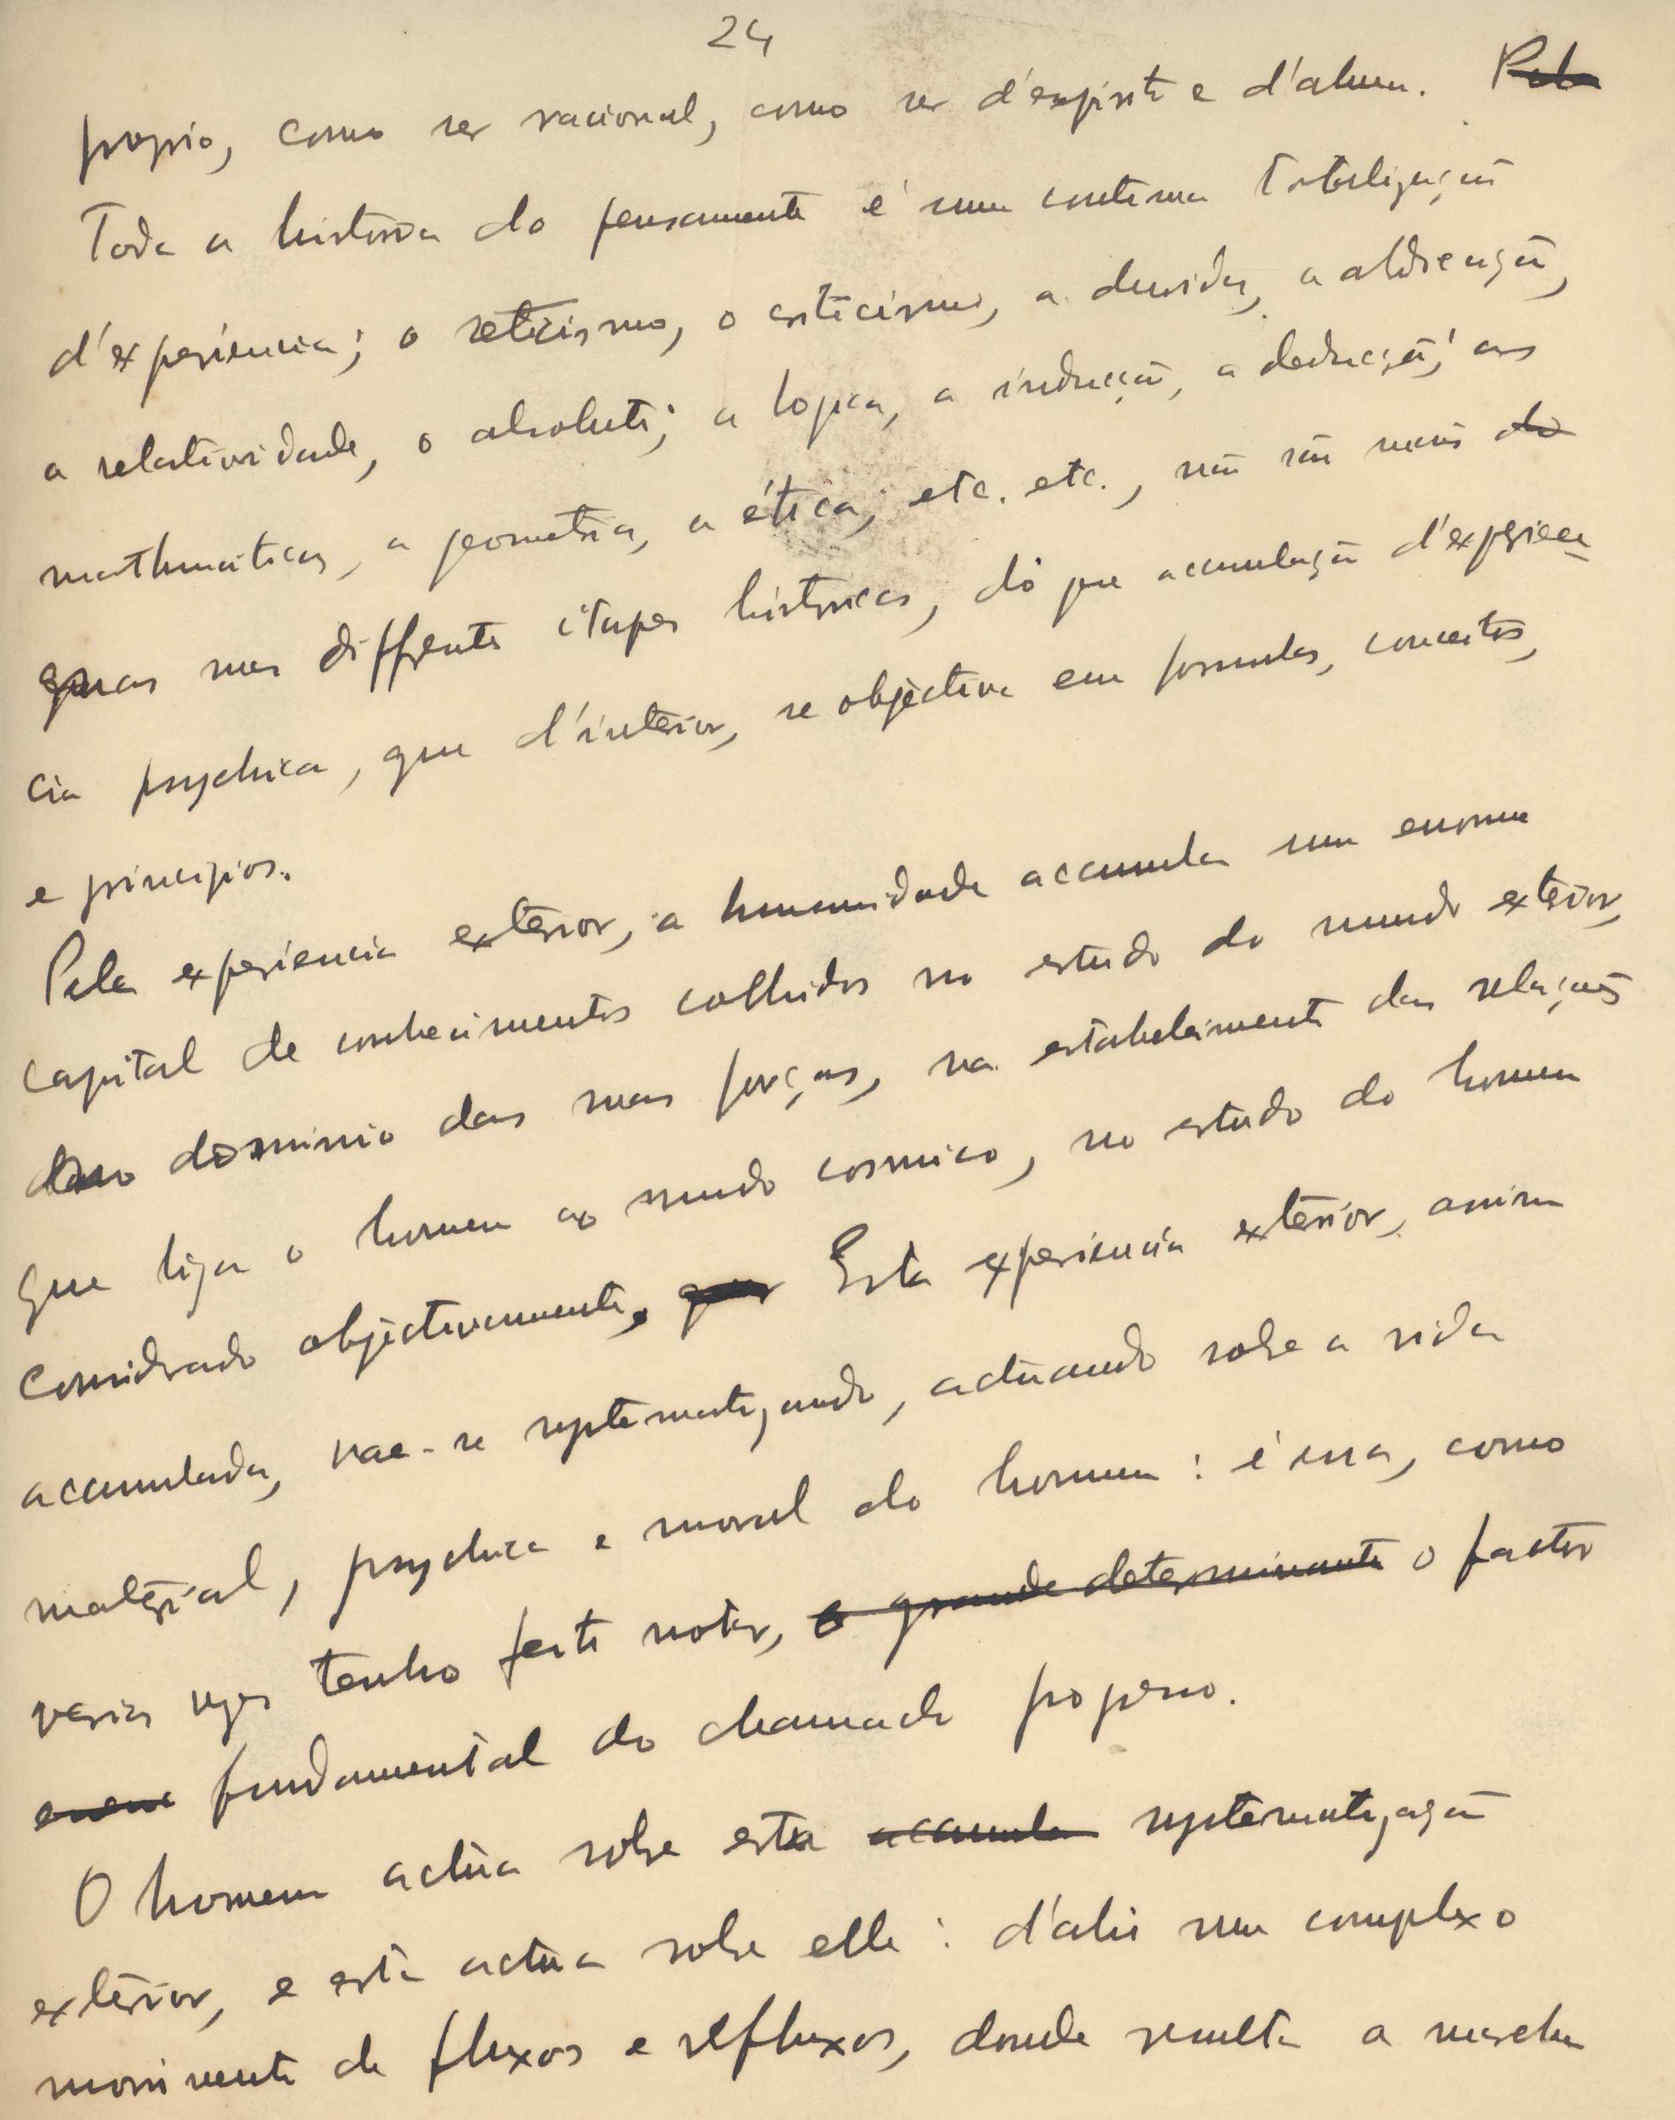 24
proprio, como ser racional, como ser d'espirito e d'alma. Pela
Toda a historia do pensamento é uma continua totalização
d'experiencia; o scticismo, o criticismo, a duvida, a abstração,
a relatividade, o absoluto; a logica, a inducção, a deducção; as
mathmaticas, a geometria, a ética; etc. etc., não são mais do
que nas diffrentes etapes historicas, do que accumulação d'experien
cia psychica, que d'interior, se objectiva em formulas, conceitos,
e principios.
Pela experiencia exterior, a humanidade accumula um enorme
capital de conhecimentos colhidos no estudo do mundo exterior,
no dominio das suas forças, no estabelecimento das relações
que liga o homem ao mundo cosmico, no estudo do homem
considrado objectivamente. que Esta experiencia exterior, assim
accumulada, vae-se systematizando, actuando sobre a vida
material, psychica e moral do homem: é essa, como
varias vezes tenho feito notar, o grande determinante o factor
fundamental do chamado progresso.
O homem actúa sobre esta accumula systematização
exterior, e esta actua sobre elle: d'ahi um complexo
movimento de fluxos e refluxos, donde resulta a marcha